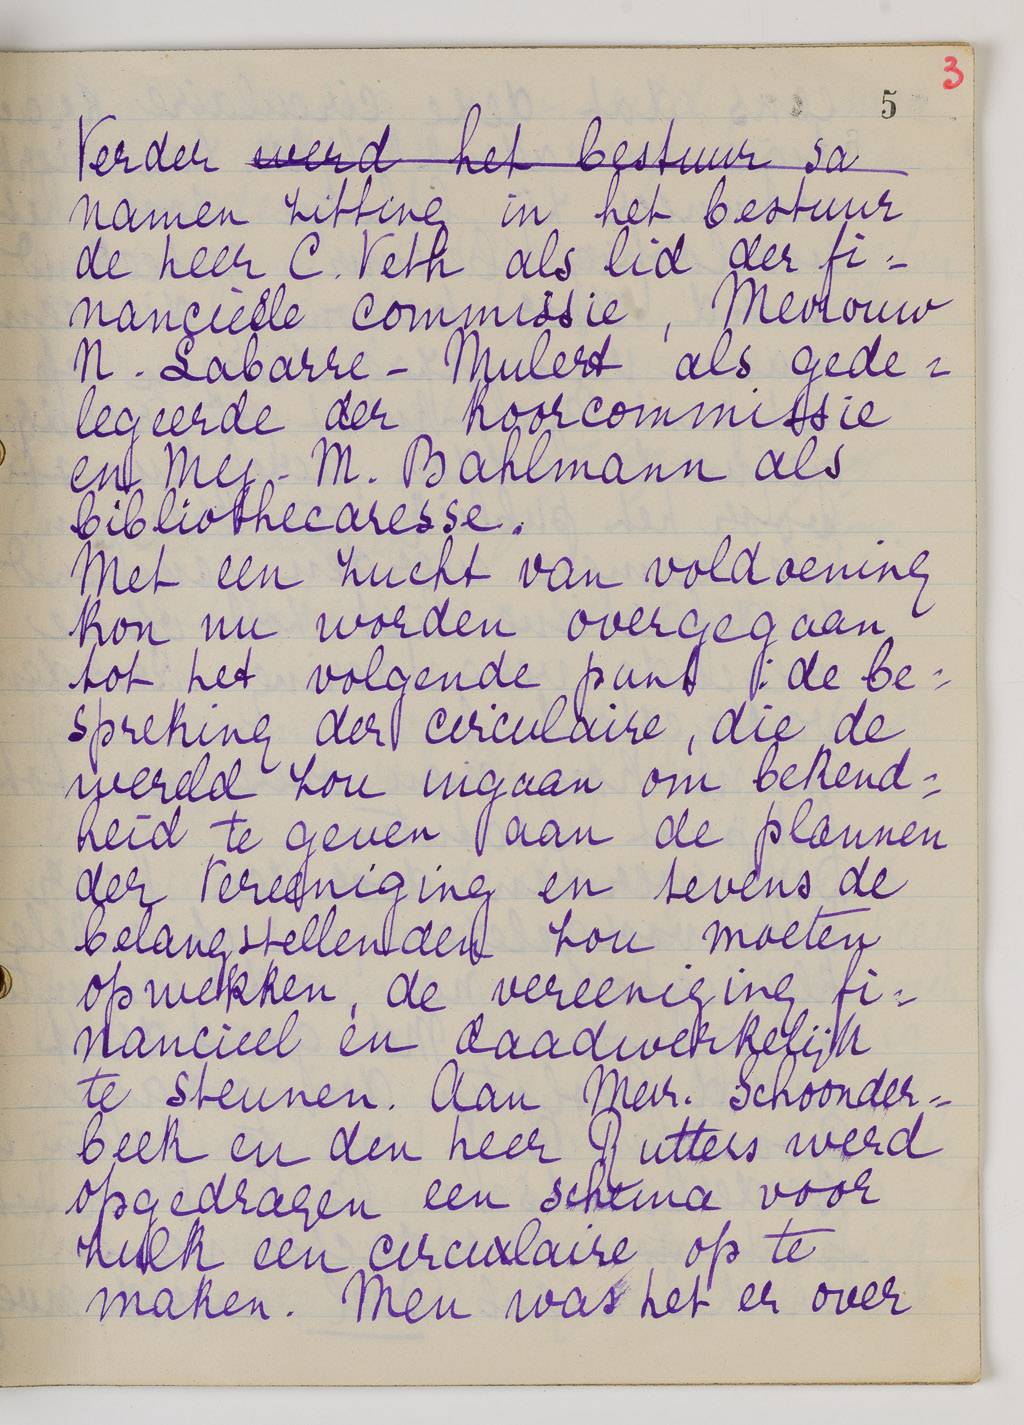 3
5
Verder werd het bestuur sa
namen zitting in het bestuur
de heer C. Veth als lid der fi=
nanciëele commissie, Mevrouw
N. Labarre - Mulert als gede=
legeerde der koorcommissie
en Mej. M. Bahlmann als
bibliothecaresse.
Met een zucht van voldoening
kon nu worden overgegaan
tot het volgende punt : de be=
spreking der circulaire, die de
wereld zou ingaan om bekend=
heid te geven aan de plannen
der Vereeniging en tevens de
belangstellenden zou moeten
opwekken, de vereeniging fi=
nancieel en daadwerkelijk
te steunen. Aan Mevr. Schoonder=
beek en den heer Rutters werd
opgedragen een schema voor
zulk een circulaire op te
maken. Men was het er over